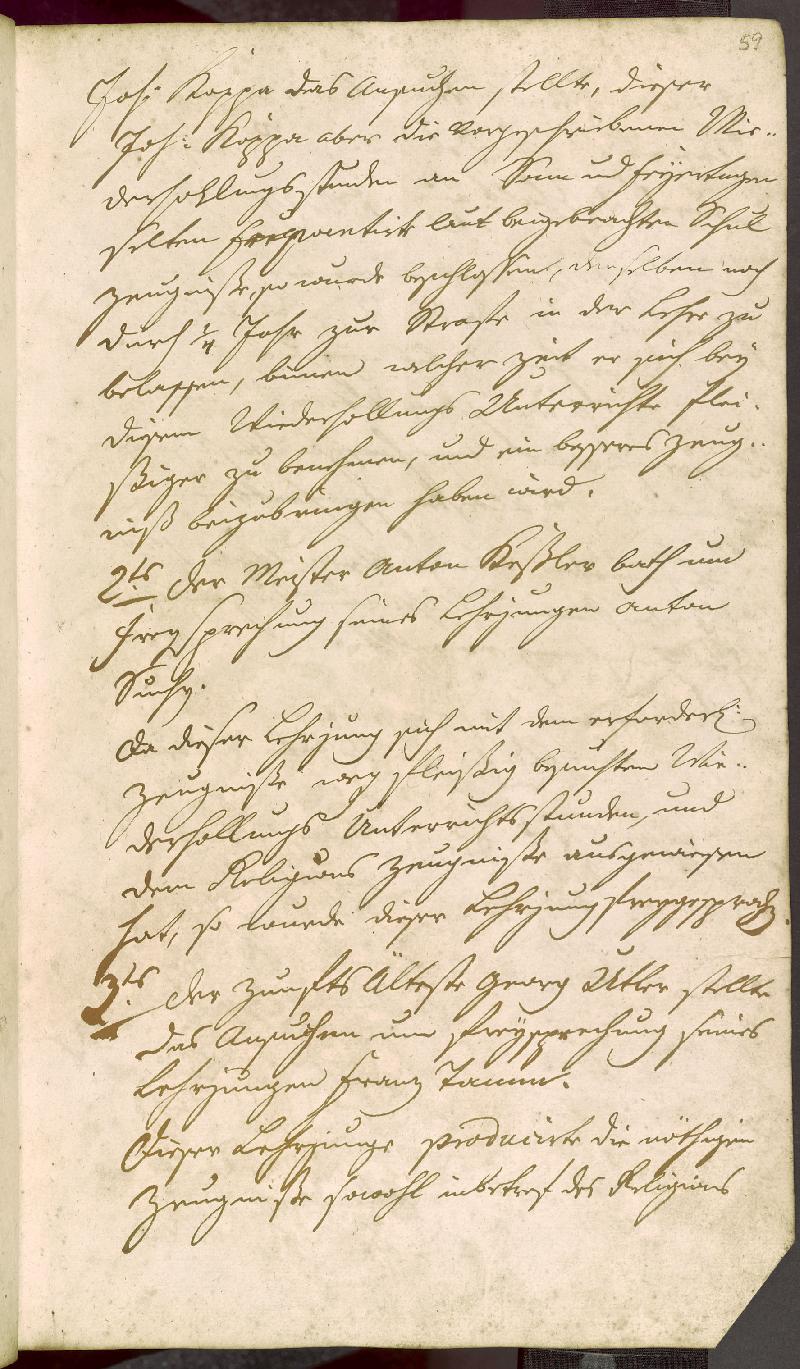 59
Joh: Koppa das Ansuchen stellte, dieser
Joh: Koppa aber die vorgeschriebenen Wie-
derhollungsstunden an Sonn und Feyertagen
selten frequentirte laut beigebrachten Schul
zeugnisse, so wurde beschlossen, denselben noch
durch 1/4 Jahr zur Strafe in der Lehre zu
belassen, binnen welcher Zeit er sich bey
diesem Wiederhollungs Unterrichte flei-
ßiger zu benehmen, und ein besseres Zeug-
niß beizubringen haben wird.
2ts Der Meister Anton Keßler bath um
Freysprechung seines Lehrjungen Anton
Suchy.
Da dieser Lehrjung sich mit dem erforderl:
Zeugnisse weg fleißig besuchten Wie-
derhollungs Unterrichtsstunden, und
dem Religions Zeugnisse ausgewiesen
hat, so wurde dieser Lehrjung freygesproch.
3ts Der Zunfts Älteste Georg Utler stellte
das Ansuchen um Freysprechung seines
Lehrjungen Franz Tamm.
Dieser Lehrjunge producirte die nöthigen
Zeugnisse sowohl inbetref des Religions